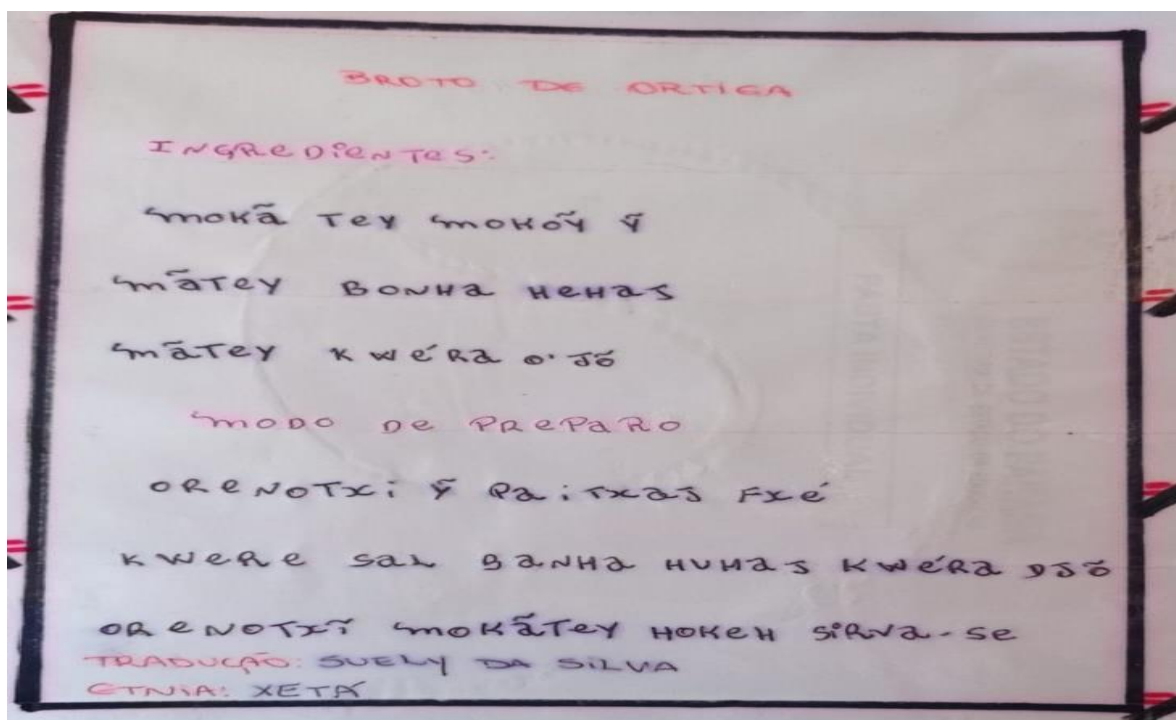 BROTO DE ORTIGA
INGREDIENTES:
MOKÃ TEY MOKÕY Ỹ
MÃTEY BONHA HEHAS
MÃTEY KWÉRA O'JÕ
MODO DE PREPARO
ORENOTXI Ỹ PAITXAS FXÉ
KWERE SAL BANHA HUHAS KWÉRA
ORENOTXĨ MOKÃTEY HOKEH SIRVA-SE
TRADUÇÃO: SUELY DA SILVA
ETNIA: XETÁ